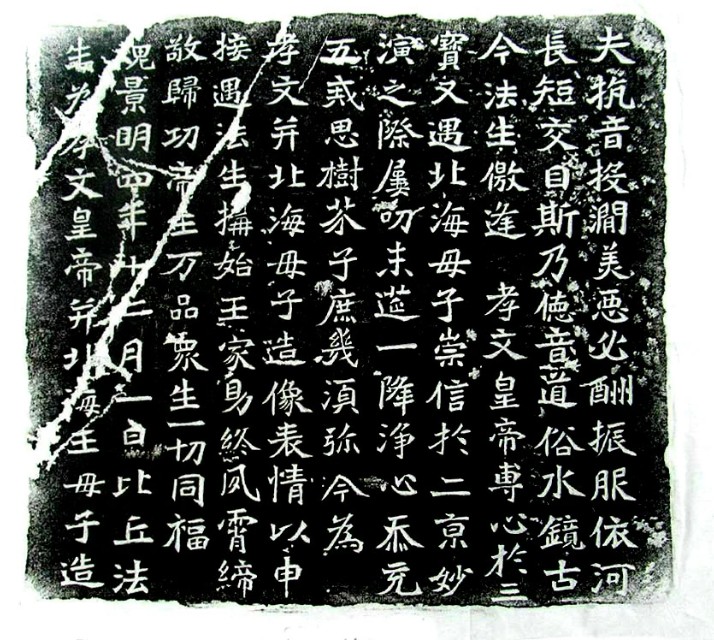 夫抗音投澗美惡必酬振服依河
長短交目斯乃德音道俗水鏡古
今法生儌逢　孝文皇帝專心於三
寶又遇北海母子崇信於二京妙
演之際屢叨末筵一降淨心忝充
五戒思樹芥子庶幾須弥今為
孝文并北海母子造像表情以申
接遇法生構始王家助終夙霄締
敬歸功帝王万品眾生一切同福
魏景明四年十二月一日比丘法
生為孝文皇帝并北海王母子造